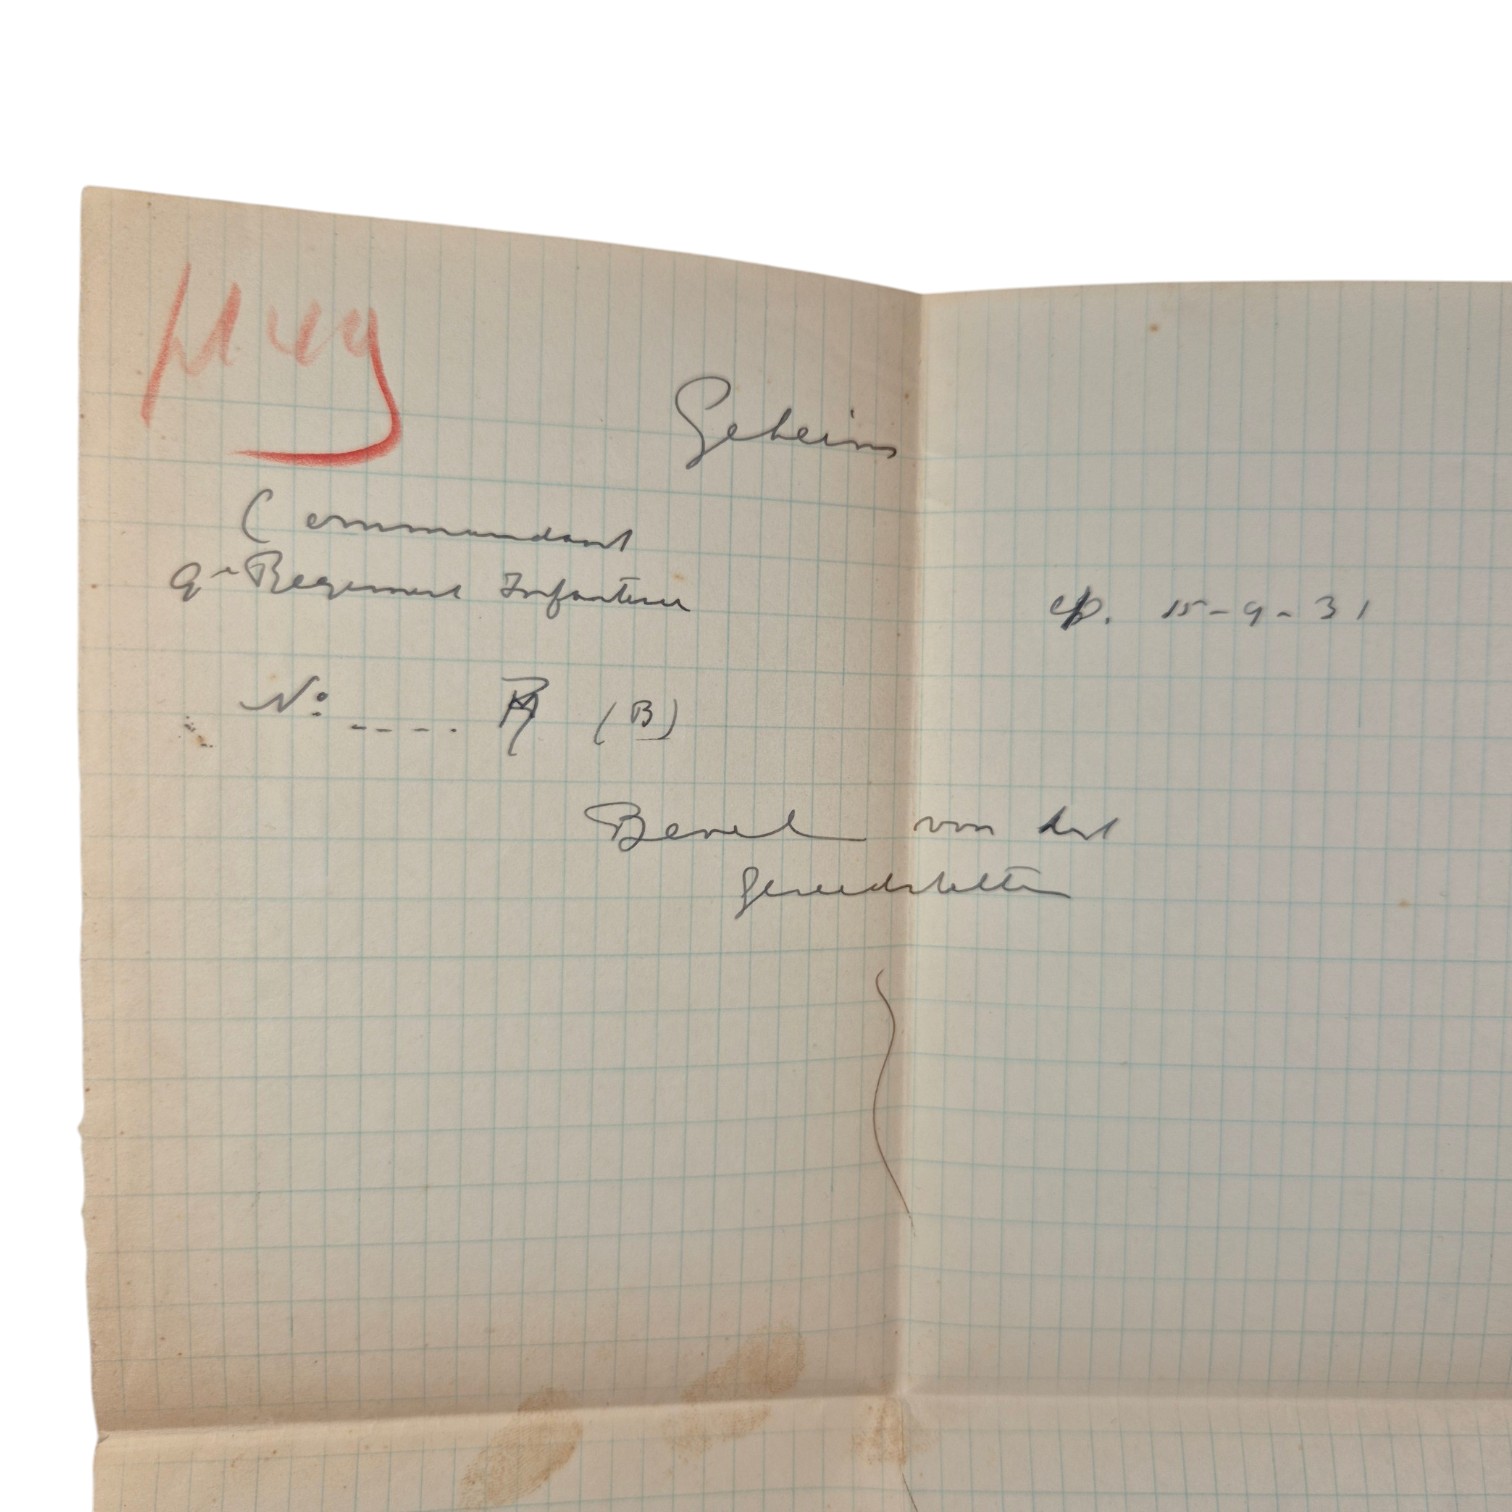 Geheim
Commandant
9e Regiment Infanterie
cp. 15-9-31
No. .... (B)
Bevel van het
gereedstellen